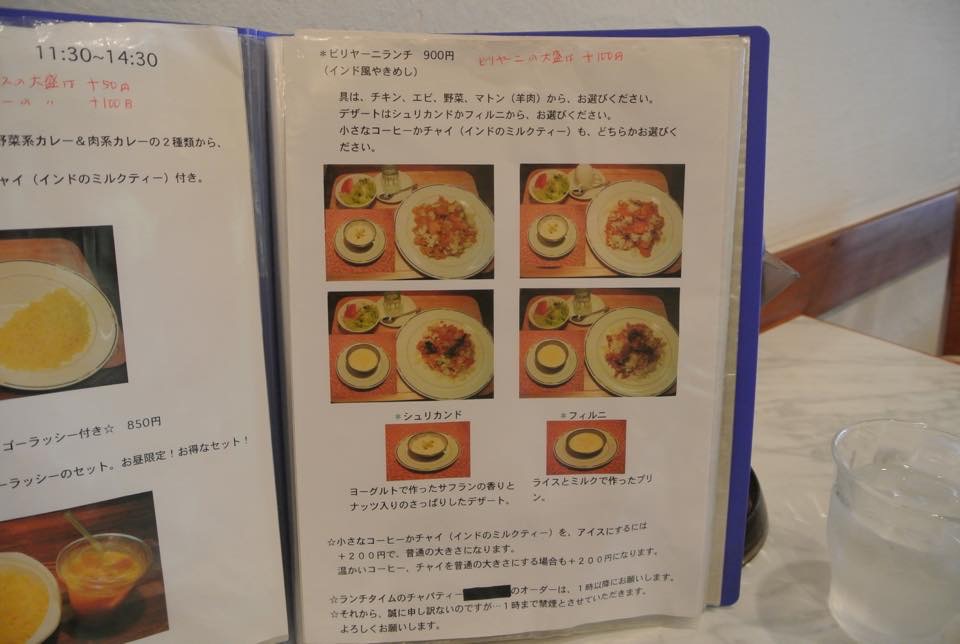 11:30~14:30
スの大盛は +50円
ーの 〃 +100円
野菜系カレー＆肉系カレーの２種類から、
チャイ（インドのミルクティー）付き。
ゴーラッシー付き☆ 850円
ーラッシーのセット。お昼限定！お得なセット！
＊ビリヤーニランチ 900円
ビリヤーニの大盛は +100円
（インド風やきめし）
具は、チキン、エビ、野菜、マトン（羊肉）から、お選びください。
デザートはシュリカンドかフィルニから、お選びください。
小さなコーヒーかチャイ（インドのミルクティー）も、どちらかお選びく
ださい。
＊シュリカンド
＊フィルニ
ヨーグルトで作ったサフランの香りと
ナッツ入りのさっぱりしたデザート。
ライスとミルクで作ったプリ
ン。
☆小さなコーヒーかチャイ（インドのミルクティー）を、アイスにするには
＋２００円で、普通の大きさになります。
温かいコーヒー、チャイを普通の大きさにする場合も＋２００円になります。
☆ランチタイムのチャパティー のオーダーは、１時以降にお願いします。
☆それから、誠に申し訳ないのですが…１時まで禁煙とさせていただきます。
よろしくお願いします。